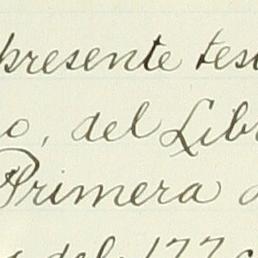 presente tes
o, del Lib
Primera
del 177